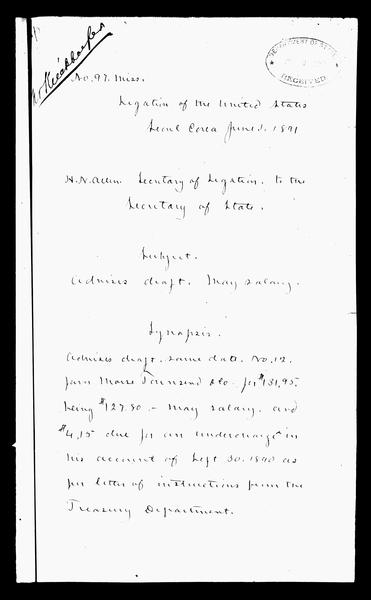 No. 97. Miss.
DEPARTMENT OF STATE
RECEIVED
Legation of the United States
Seoul Corea June 1. 1891
H. N. Allen. Secretary of Legation. to the
Secretary of State.
Subject.
Advises draft. May salary.
Synopsis.
Advises draft, same date, No. 12.
favr Morse Townsend & Co. for $131.95.
being $127.80 – May salary. and
$4.15 due for an undercharge in
his account of Sept 30. 1890 as
per letter of instructions from the
Treasury Department.